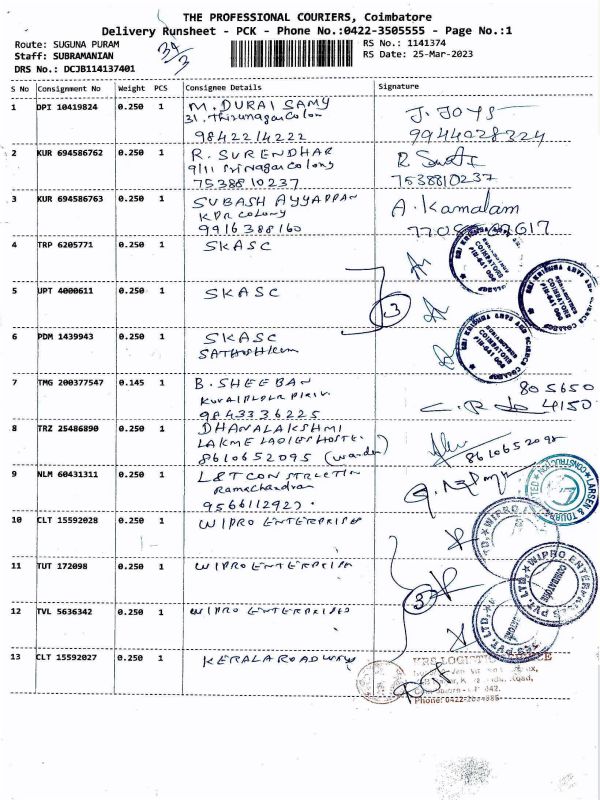 THE PROFESSIONAL COURIERS, Coimbatore
Delivery Runsheet - PCK - Phone No.:0422-3505555 - Page No.:1
Route: SUGUNA PURAM
RS No.: 1141374
Staff: SUBRAMANIAN
RS Date: 25-Mar-2023
DRS No.: DCJB114137401
S No Consignment No Weight PCS Consignee Details Signature
1 DPI 10419824 0.250 1 M. DURAI SAMY
31, Thirunagar Colon
9842214222
9944028324
2 KUR 694586762 0.250 1 R. SURENDHAR
9/11 Sri Nagar Colony
7538810237
7538810237
3 KUR 694586763 0.250 1 SUBASH AYYAPPAN
KPR COLONY
9916388160
A. Kamalam
4 TRP 6205771 0.250 1 SKASC
5 UPT 4000611 0.250 1 SKASC
3
6 PDM 1439943 0.250 1 SKASC
7 TMG 200377547 0.145 1 B. SHEEBAN
9843336225
805650
4150
8 TRZ 25486890 0.250 1 DHANALAKSHMI
LAKME LADIES HOSTE.
8610652095 (warden)
8610652095
9 NLM 60431311 0.250 1 L&T CONSTRCTIN
Ramachandran
10 CLT 15592028 0.250 1 WIPRO ENTERPRISES
11 TUT 172098 0.250 1 WIPRO ENTERPRISE
3
12 TVL 5636342 0.250 1 WIPRO ENTERPRISES
13 CLT 15592027 0.250 1 KERALA ROADWAYS